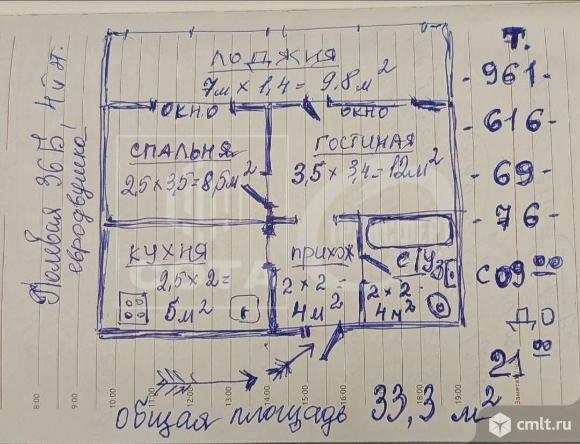 ЛОДЖИЯ
7м × 1,4 = 9.8 м²
ОКНО
ОКНО
СПАЛЬНЯ
2,5 × 3,5 = 8,5м²
ГОСТИНАЯ
3,5 × 3,4 = 12м²
КУХНЯ
2,5 × 2 =
5м²
ПРИХОЖ
2 × 2 =
4м²
С/УЗ
2 × 2 =
4м²
Полевая 36Б, 4й эт.
евродвушка!
Т.
- 961 -
- 616 -
- 69 -
- 76 -
С 09 00
ДО
21 00
общая площадь 33,3 м²
8:00
9:00
10:00
11:00
12:00
13:00
14:00
15:00
18:00
19:00
Заметки
cmlt.ru